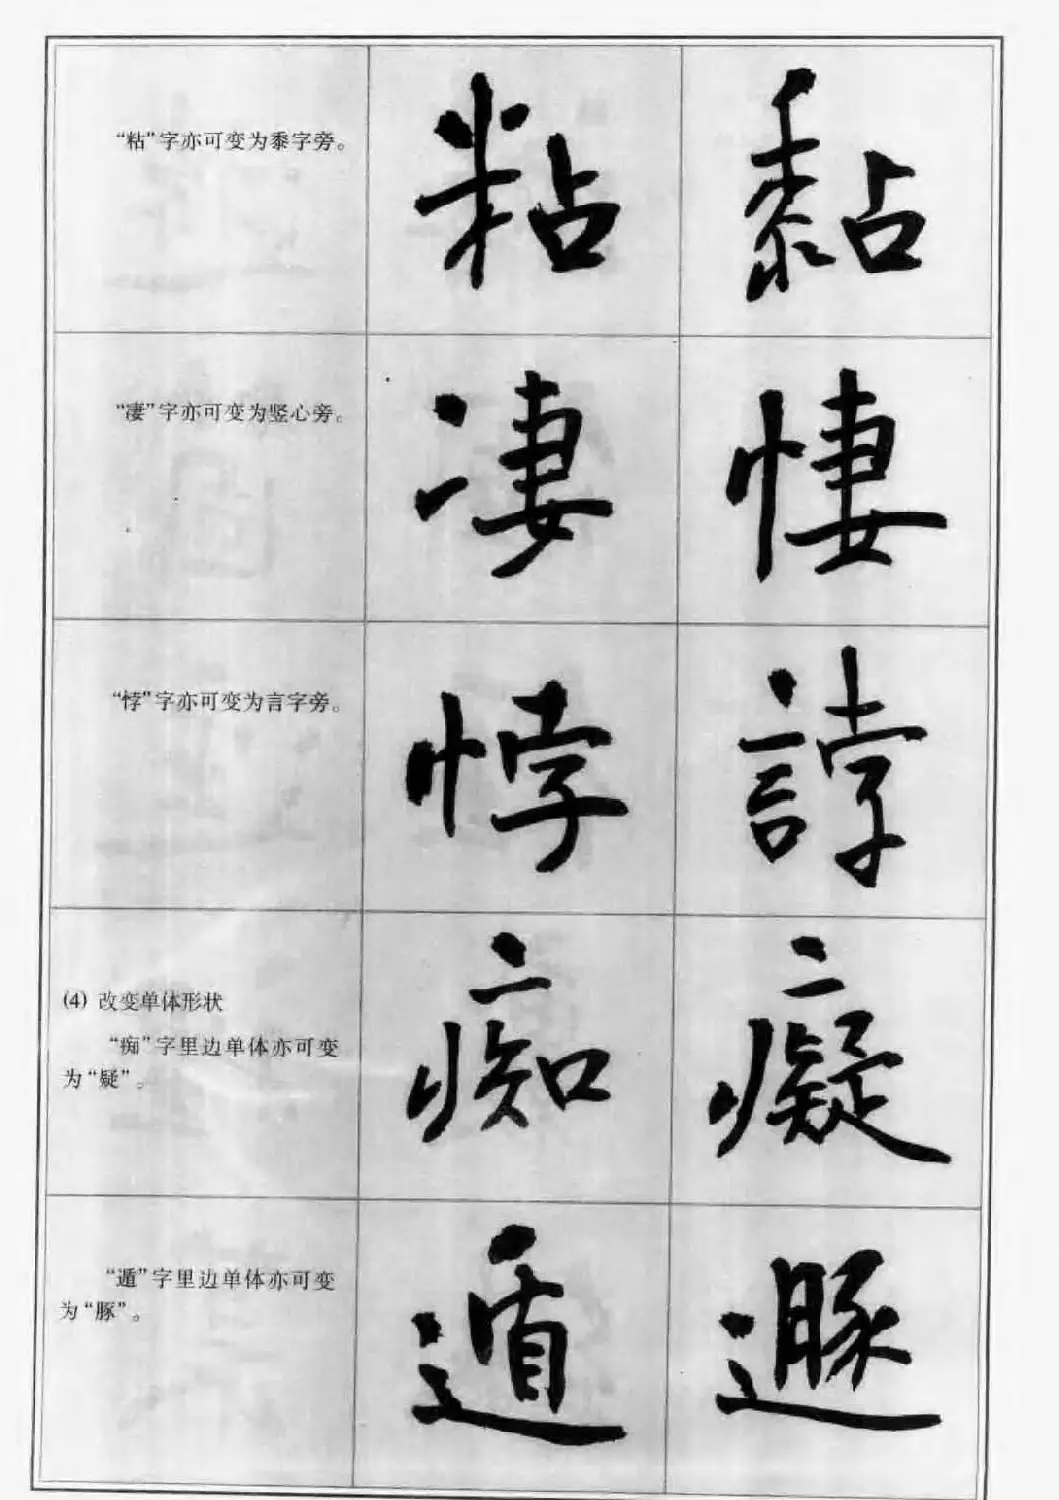 “粘”字亦可变为黍字旁。
粘 黏
“凄”字亦可变为竖心旁。
凄 悽
“悖”字亦可变为言字旁。
悖 誖
(4) 改变单体形状
“痴”字里边单体亦可变
为“疑”。
痴 癡
“遁”字里边单体亦可变
为“豚”。
遁 遯